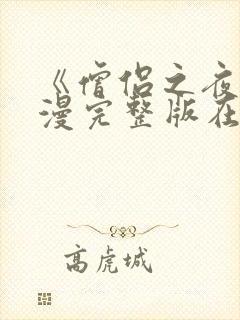 《僧侣之夜
漫完整版在
高虎城